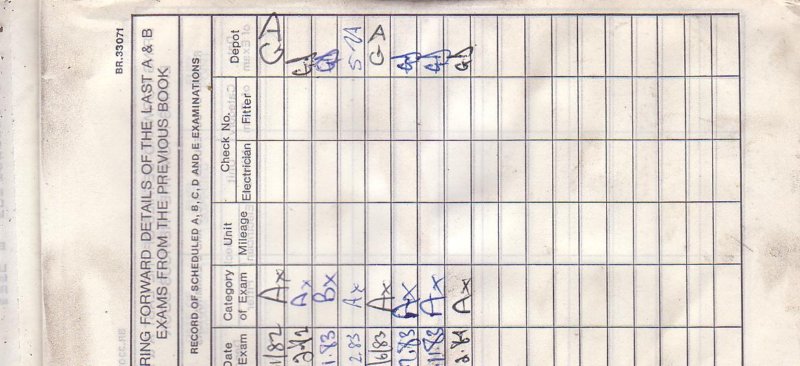 BR.33071
RING FORWARD DETAILS OF THE LAST A & B
EXAMS FROM THE PREVIOUS BOOK
RECORD OF SCHEDULED A, B, C, D AND E EXAMINATIONS
Date Exam Category of Exam Unit Mileage Check No. Electrician Fitter Depot
1/82 Ax GD
Ax GD
1.83 Bx GD
2.83 Ax
6/83 Ax GD
7.83 Ax GD
11.83 Ax GD
2.84 Ax GD